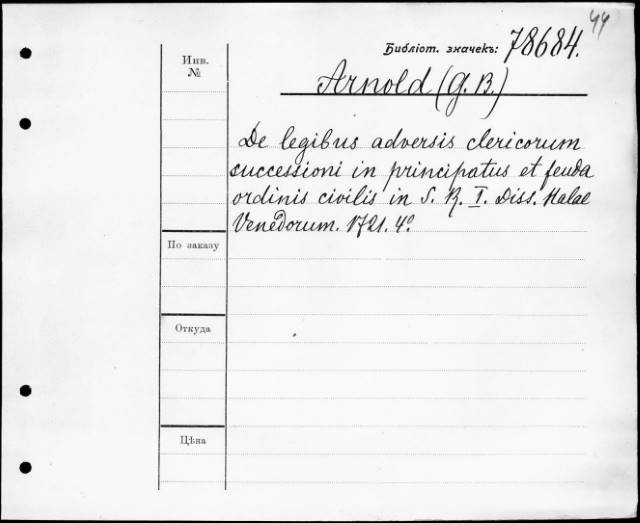 44
Библіот. значекъ: 78684.
Инв.
№
Arnold (G. B.)
De legibus adversis clericorum
successioni in principatus et feuda
ordinis civilis in S. R. I. Diss. Halae
Venedorum. 1721. 4º
По заказу
Откуда
Цѣна